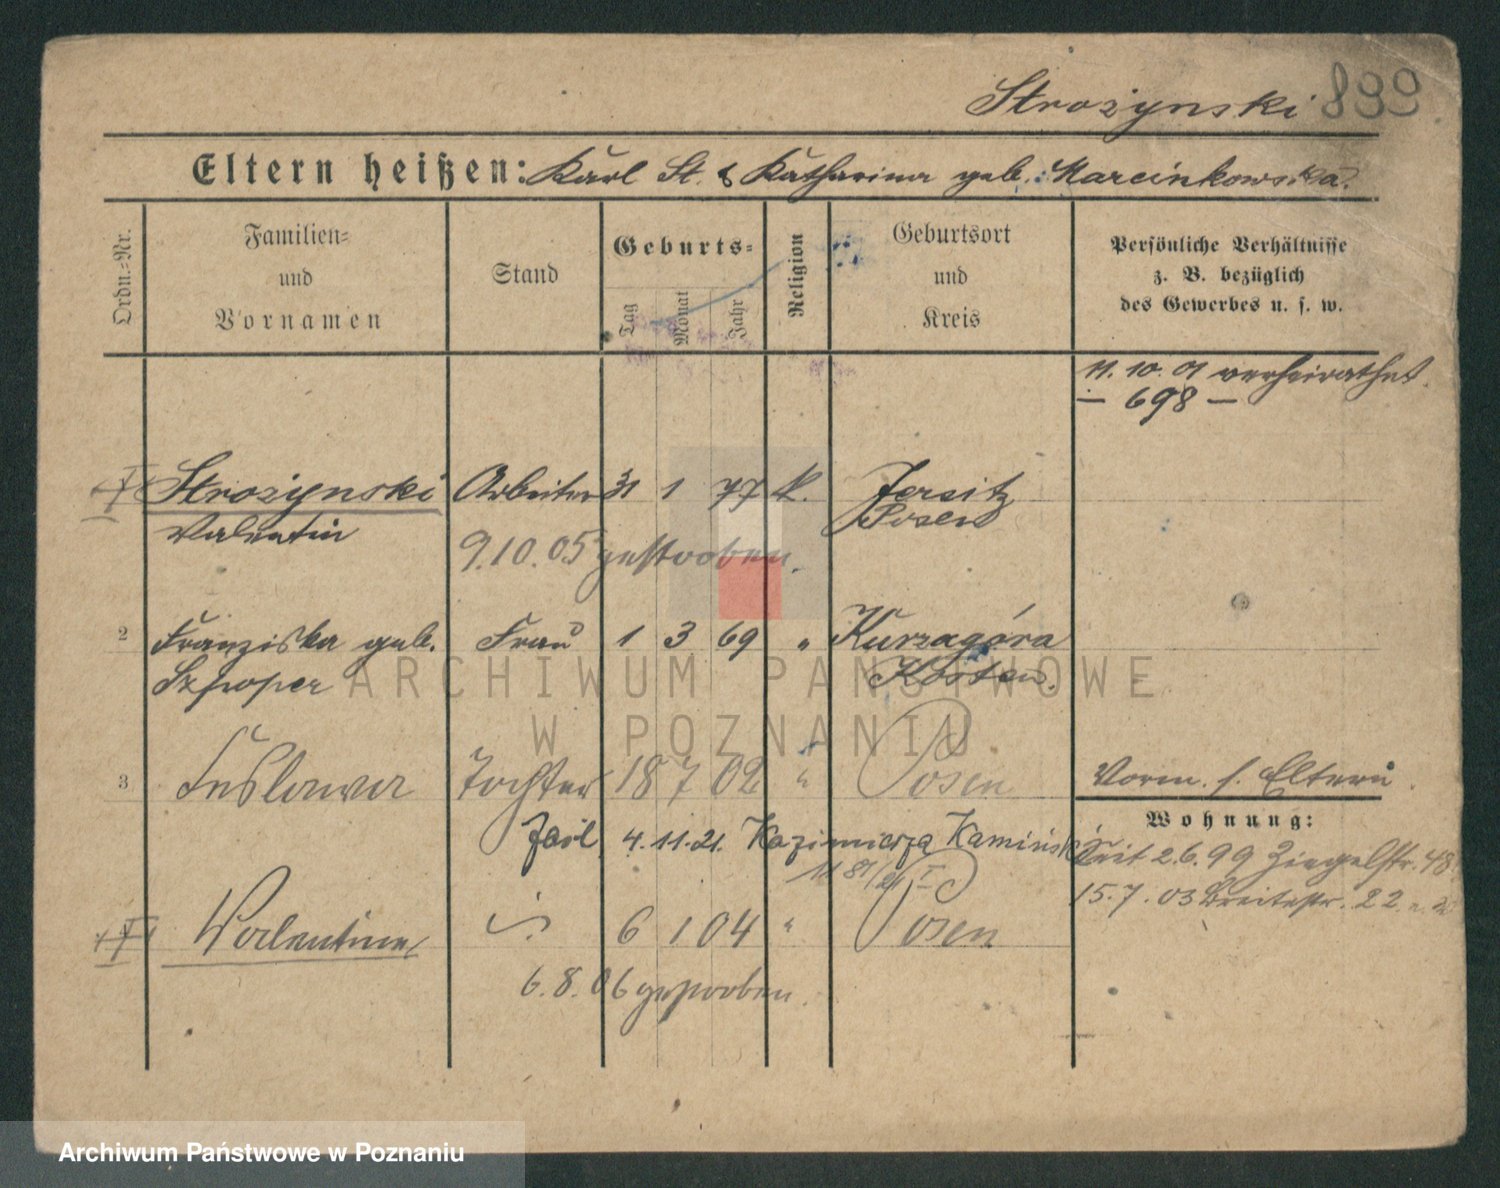 Strożynski 899
Eltern heißen: Karl St. & Katharina geb. Marcinkowska.
Ordn.-Nr.
Familien- und Vornamen
Stand
Geburts-
Tag
Monat
Jahr
Religion
Geburtsort und Kreis
Persönliche Verhältnisse
z. B. bezüglich
des Gewerbes u. s. w.
11. 10. 01 verheirathet.
— 698 —
Strożynski Arbeiter 31 1 77 k. Jersitz
Valentin Posen
9.10.05 gestorben.
2 Franziska geb. Frau 1 3 69 " Kurzagóra
Kosten.
3 Tochter 18 7 02 " Posen
Vorm. s. Eltern
4.11.21. Kazimierza Kamiński
Wohnung:
seit 2.6.99 Ziegelstr. 48
15.7.03 Breitestr. 22
Valentine 6 1 04 " Posen
6.8.06 gestorben.
ARCHIWUM PAŃSTWOWE
W POZNANIU
Archiwum Państwowe w Poznaniu